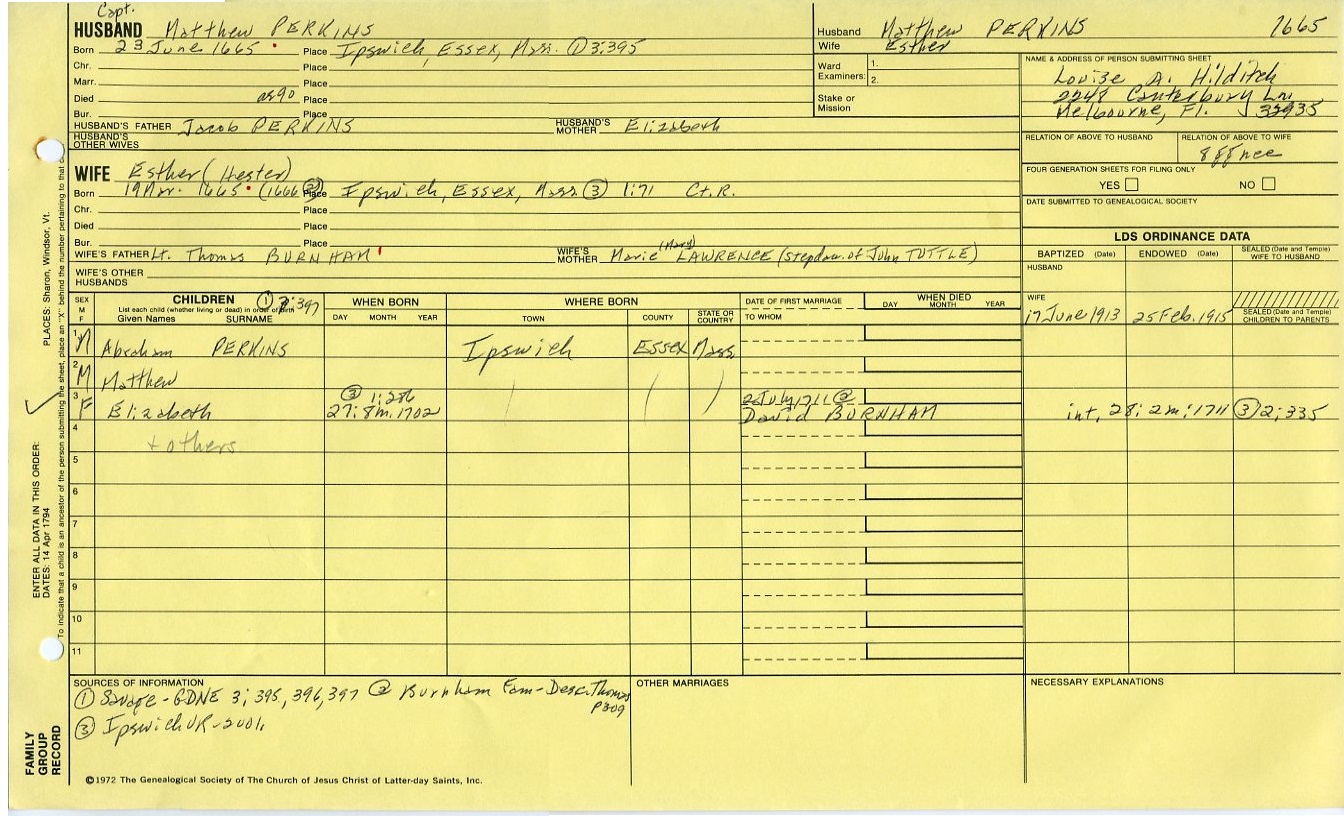 Capt.
HUSBAND Matthew PERKINS
Born 23 June 1665 Place Ipswich, Essex, Mass. ① 3:395
Chr. Place
Marr. Place
Died as 90 Place
Bur. Place
HUSBAND'S FATHER Jacob PERKINS HUSBAND'S MOTHER Elizabeth
HUSBAND'S OTHER WIVES
WIFE Esther (Hester)
Born 19 Mar. 1665 (1666 ③) Place Ipswich, Essex, Mass ③ 1:71 Ct. R.
Chr. Place
Died Place
Bur. Place
WIFE'S FATHER Lt. Thomas BURNHAM WIFE'S MOTHER Marie (Mary) LAWRENCE (stepdau. of John TUTTLE)
WIFE'S OTHER HUSBANDS
Husband Matthew PERKINS 1665
Wife Esther
Ward Examiners: 1.
2.
Stake or Mission
NAME & ADDRESS OF PERSON SUBMITTING SHEET
Louize A. Hilditch
2248 Canterbury Ln
Melbourne, Fl. 32935
RELATION OF ABOVE TO HUSBAND RELATION OF ABOVE TO WIFE
FOUR GENERATION SHEETS FOR FILING ONLY
YES NO
DATE SUBMITTED TO GENEALOGICAL SOCIETY
LDS ORDINANCE DATA
BAPTIZED (Date) ENDOWED (Date) SEALED (Date and Temple) WIFE TO HUSBAND
HUSBAND
WIFE
17 June 1913 25 Feb. 1915 SEALED (Date and Temple) CHILDREN TO PARENTS
SEX M F CHILDREN ① 3:397 WHEN BORN WHERE BORN DATE OF FIRST MARRIAGE WHEN DIED
List each child (whether living or dead) in order of birth
Given Names SURNAME DAY MONTH YEAR TOWN COUNTY STATE OR COUNTRY TO WHOM DAY MONTH YEAR
1 M Abraham PERKINS Ipswich Essex Mass.
2 M Matthew
3 F Elizabeth ③ 1:286 27:8m.1702 2 July 1711 ② David BURNHAM int, 28:2m:1711 ③ 2:335
4 + others
5
6
7
8
9
10
11
SOURCES OF INFORMATION
① Savage-GDNE 3:395, 396, 397 ② Burnham Fam-Desc. Thomas P309
③ Ipswich VR-2 vol.
OTHER MARRIAGES
NECESSARY EXPLANATIONS
©1972 The Genealogical Society of The Church of Jesus Christ of Latter-day Saints, Inc.
FAMILY GROUP RECORD
ENTER ALL DATA IN THIS ORDER:
DATES: 14 Apr 1794
PLACES: Sharon, Windsor, Vt.
To indicate that a child is an ancestor of the person submitting the sheet, place an "X" behind the number pertaining to that c